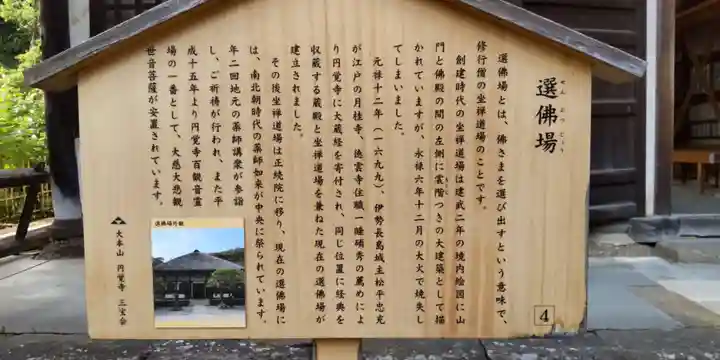 選佛場
せんぶつじょう
選佛場とは、佛さまを選び出すという意味で、
修行僧の坐禅道場のことです。
創建時代の坐禅道場は建武二年の境内絵図に山
門と佛殿の間の左側に裳階つきの大建築として描
かれていますが、永禄六年十二月の大火で焼失し
てしまいました。
元禄十二年（一六九九）、伊勢長島城主松平忠充
が江戸の月桂寺、徳雲寺住職一睡碩秀の薦めによ
り円覚寺に大蔵経を寄付され、同じ位置に経典を
収蔵する蔵殿と坐禅道場を兼ねた現在の選佛場が
建立されました。
その後坐禅道場は正続院に移り、現在の選佛場に
は、南北朝時代の薬師如来が中央に祭られています。
年二回地元の薬師講衆が参詣
し、ご祈祷が行われ、また平
成十五年より円覚寺百観音霊
場の一番として、大慈大悲観
世音菩薩が安置されています。
選佛場外観
大本山 円覚寺 三宝会
4